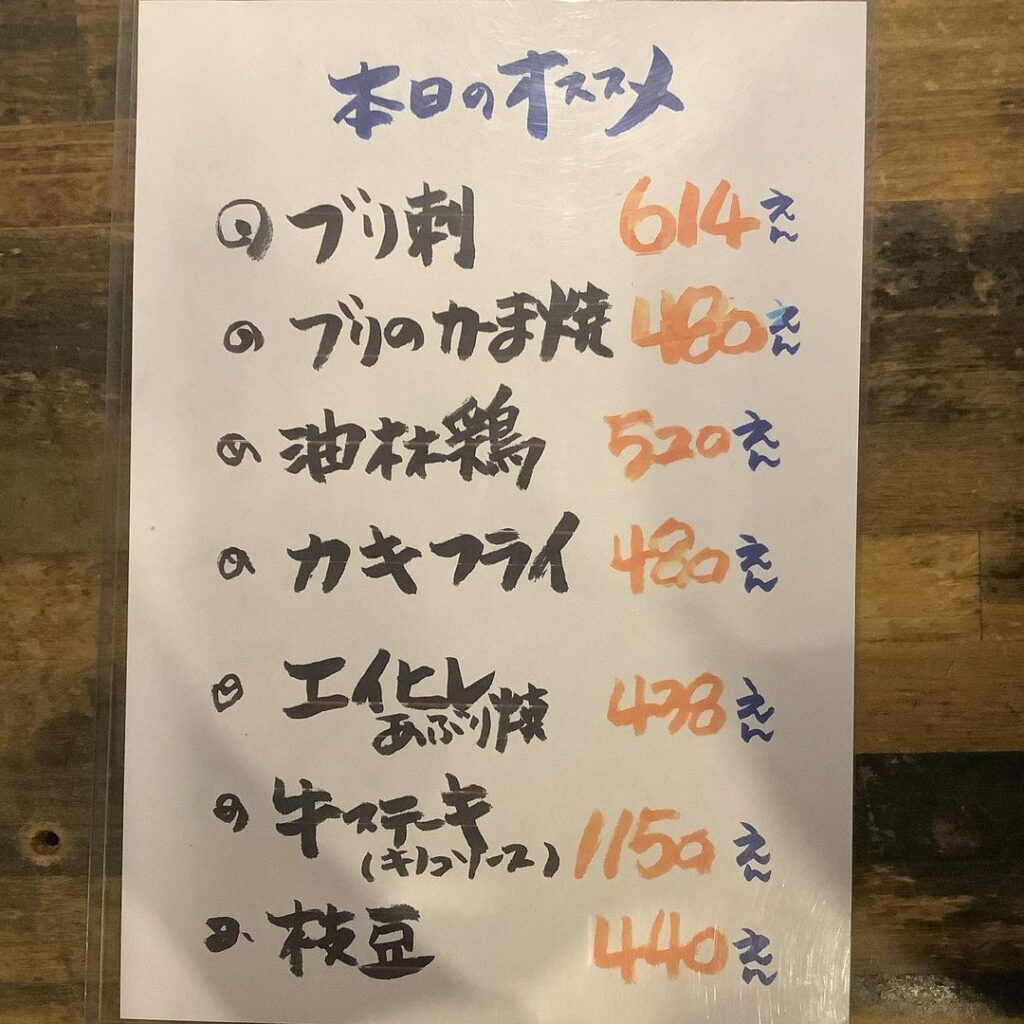 本日のオススメ
ブリ刺 614えん
ブリのかま焼 480えん
油林鶏 520えん
カキフライ 480えん
エイヒレ
あぶり焼 438えん
牛ステーキ
(キノコソース) 1150えん
枝豆 440えん